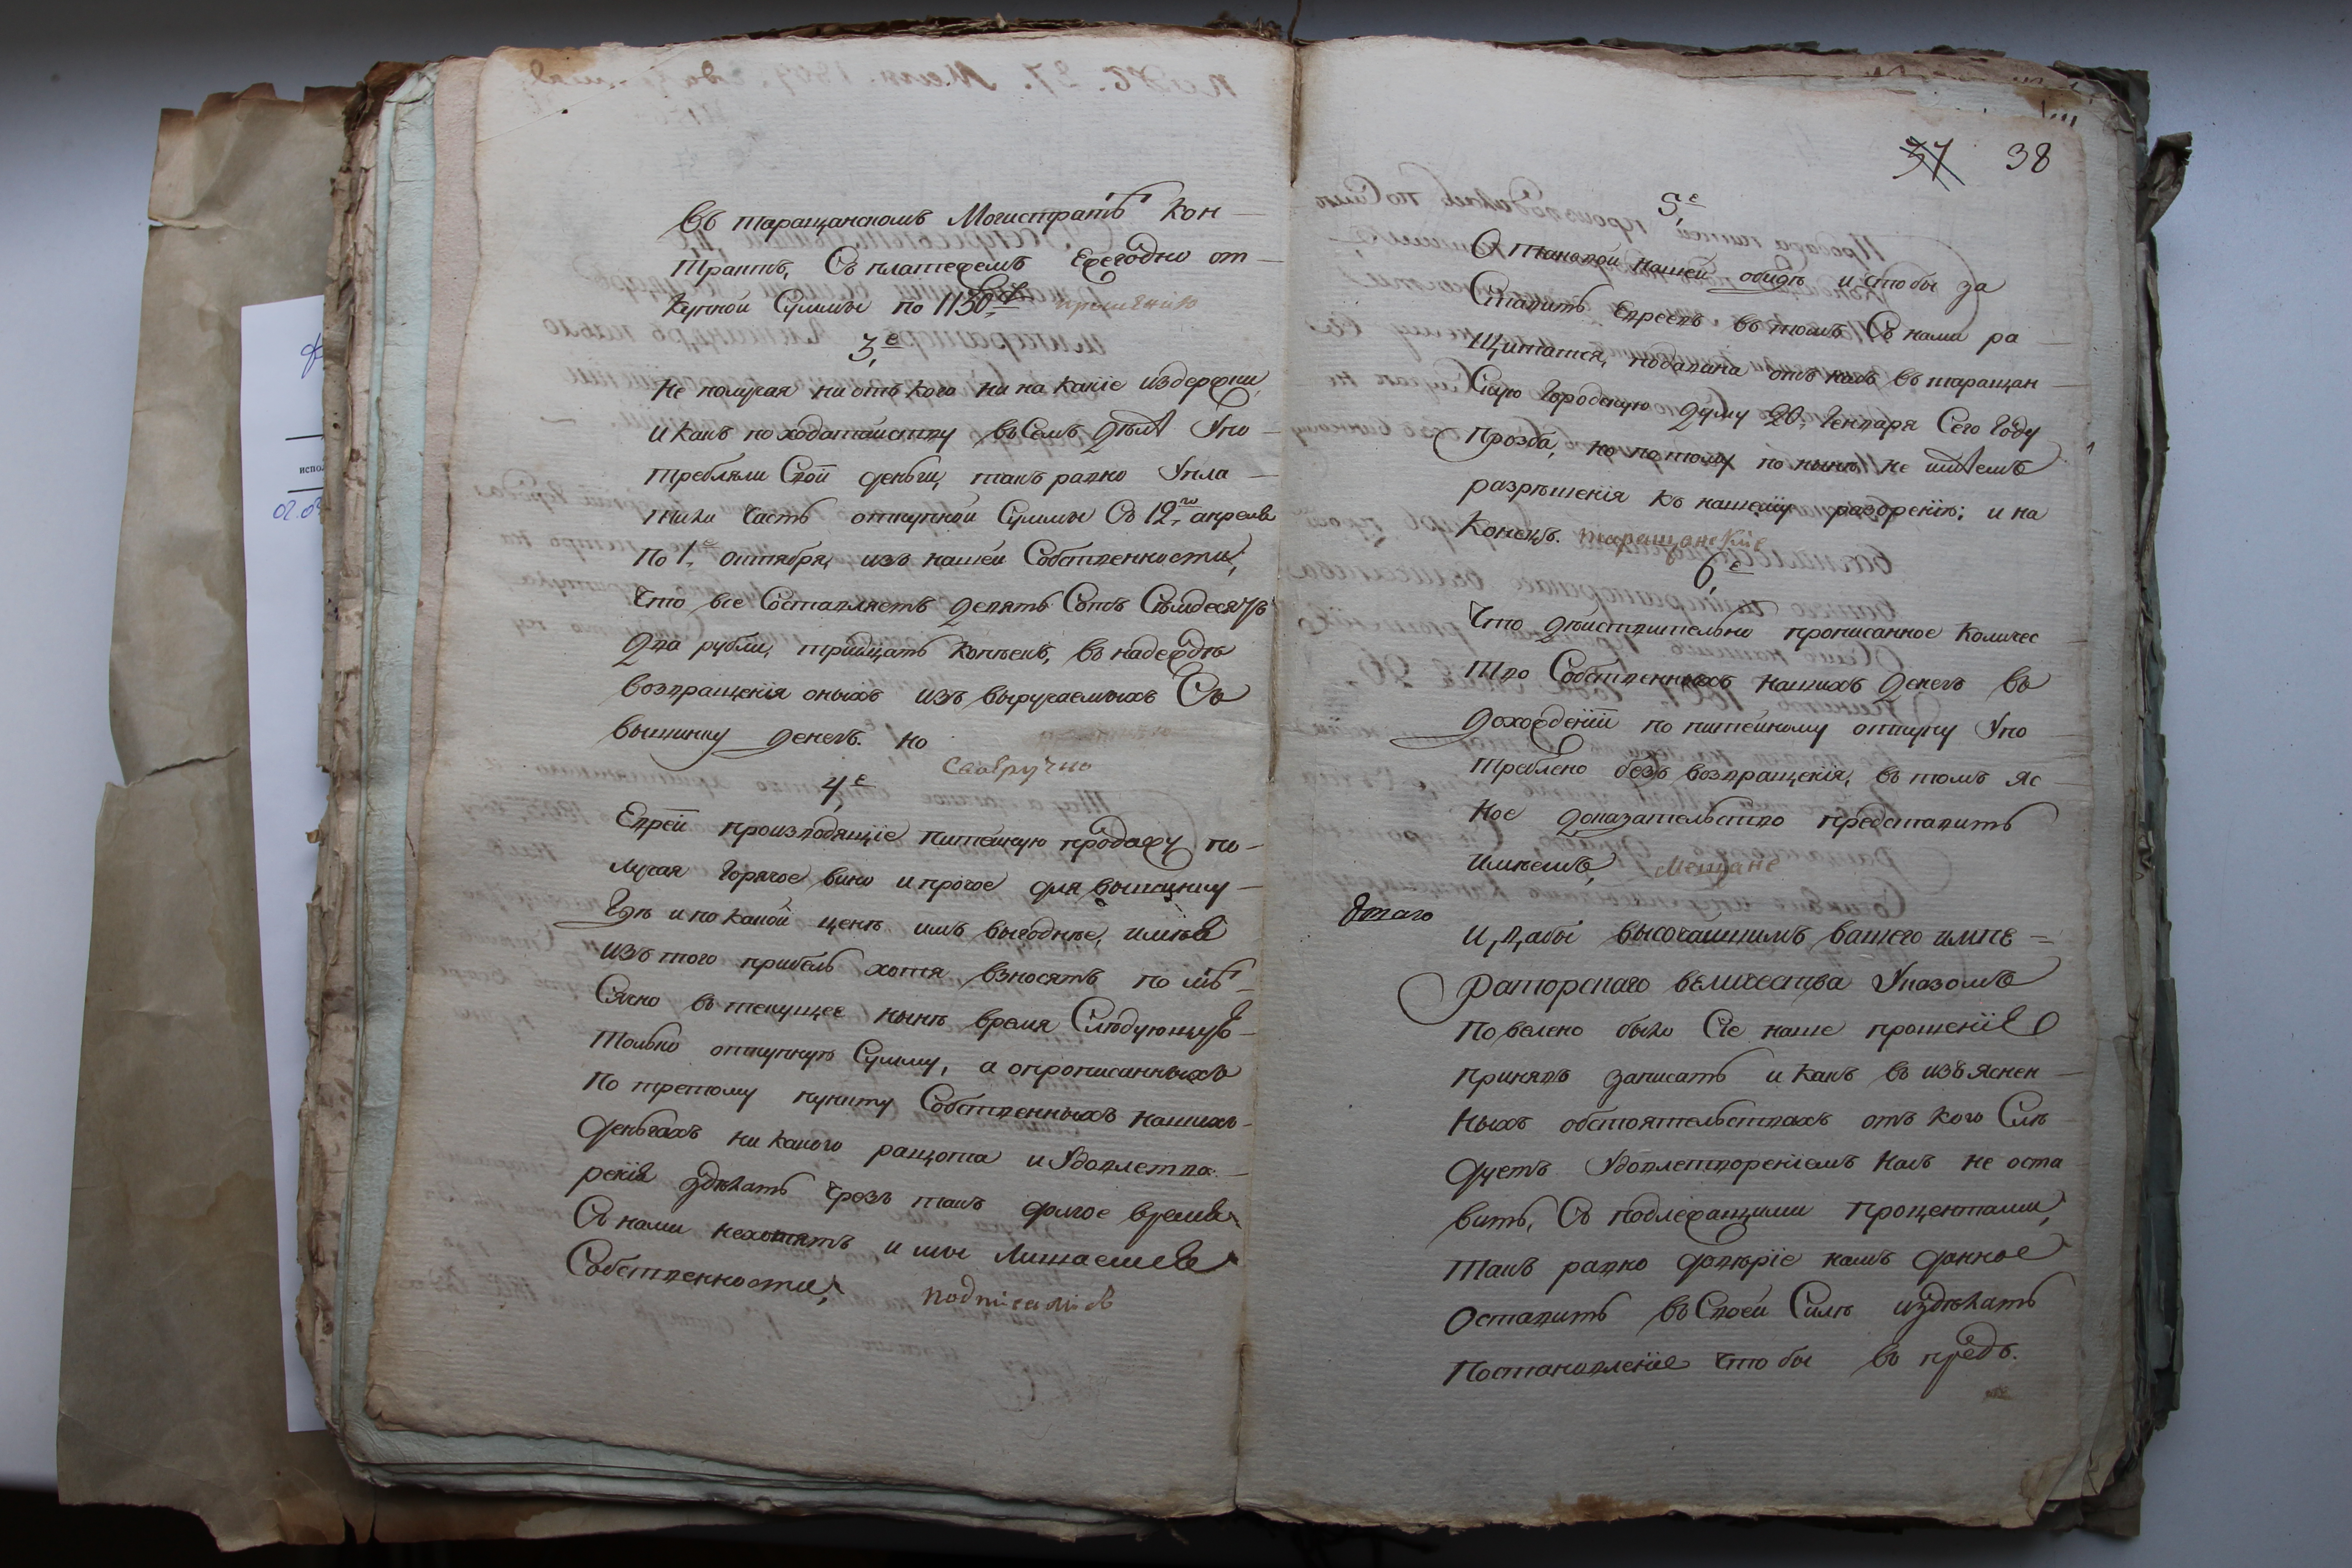 въ таращанскомъ Могистратѣ кон-
трактъ, Съ платежемъ Ежегодно от-
купной Суммы по 1150 прошению
3,е
Не получая ни отъ кого ни на какие издержки,
и какъ по ходатайству въ Семъ дѣлѣ Упо-
требляли Свои деньги, такъ равно Упла-
тили часть откупной Суммы Съ 12,го апреля
По 1,е октября, изъ нашей Собственности,
что все Составляетъ девять Сотъ Сѣмдесятъ
два рубли, тридцать копѣекъ, въ надеждѣ
возвращенія оныхъ изъ выручаемыхъ Съ
вышинку денегъ. но
своеручно
4,е
Евреи производящіе питейную продажу по-
лучая горячое вино и прочое для вышинку
Гдѣ и по какой ценѣ имъ выгоднѣе, имѣя
изъ того прибыль хотя взносятъ по мѣ-
Сячно въ текущее нынѣ время Слѣдующую
только откупную Сумму, а опрописанныхъ
По третому пункту Собственныхъ нашихъ
деньгахъ ни какого ращота и Удовлетво-
ренія здѣлать чрезъ такъ долгое время
Съ нами нехотятъ и мы Лишаемся
Собственности;
подписались
37 38
5,е
О таковой нашей обидѣ и чтобы за
Ставить Евреевъ въ томъ Съ нами ра-
щитатся, подавана отъ насъ въ таращан-
Скую Городскую думу 20, Генваря Сего Году
Прозба, но потому по нынѣ не имѣемъ
разрѣшенія къ нашему разорению; и на
Конецъ. таращанские
6,е
Что дѣйствительно прописанное количес
тво Собственныхъ нашихъ денегъ въ
дохожденіи по питейному откупу Упо
треблено безъ возвращенія, въ томъ яс
ное доказательство представить
имѣемъ, Мещане
Дтаго
И, дабы высочайшимъ вашего импе=
раторскаго величества Указомъ
повелено было Сіе наше прошеніе
принявъ записать и какъ въ изъяснен-
ныхъ обстоятельствахъ отъ кого Слѣ
дуетъ Удовлетвореніемъ насъ не оста
вить, Съ подлежащими процентами,
Такъ равно довѣріе намъ данное
Оставить въ Своей Силѣ издѣлать
Постановленіе что бы въ предь.